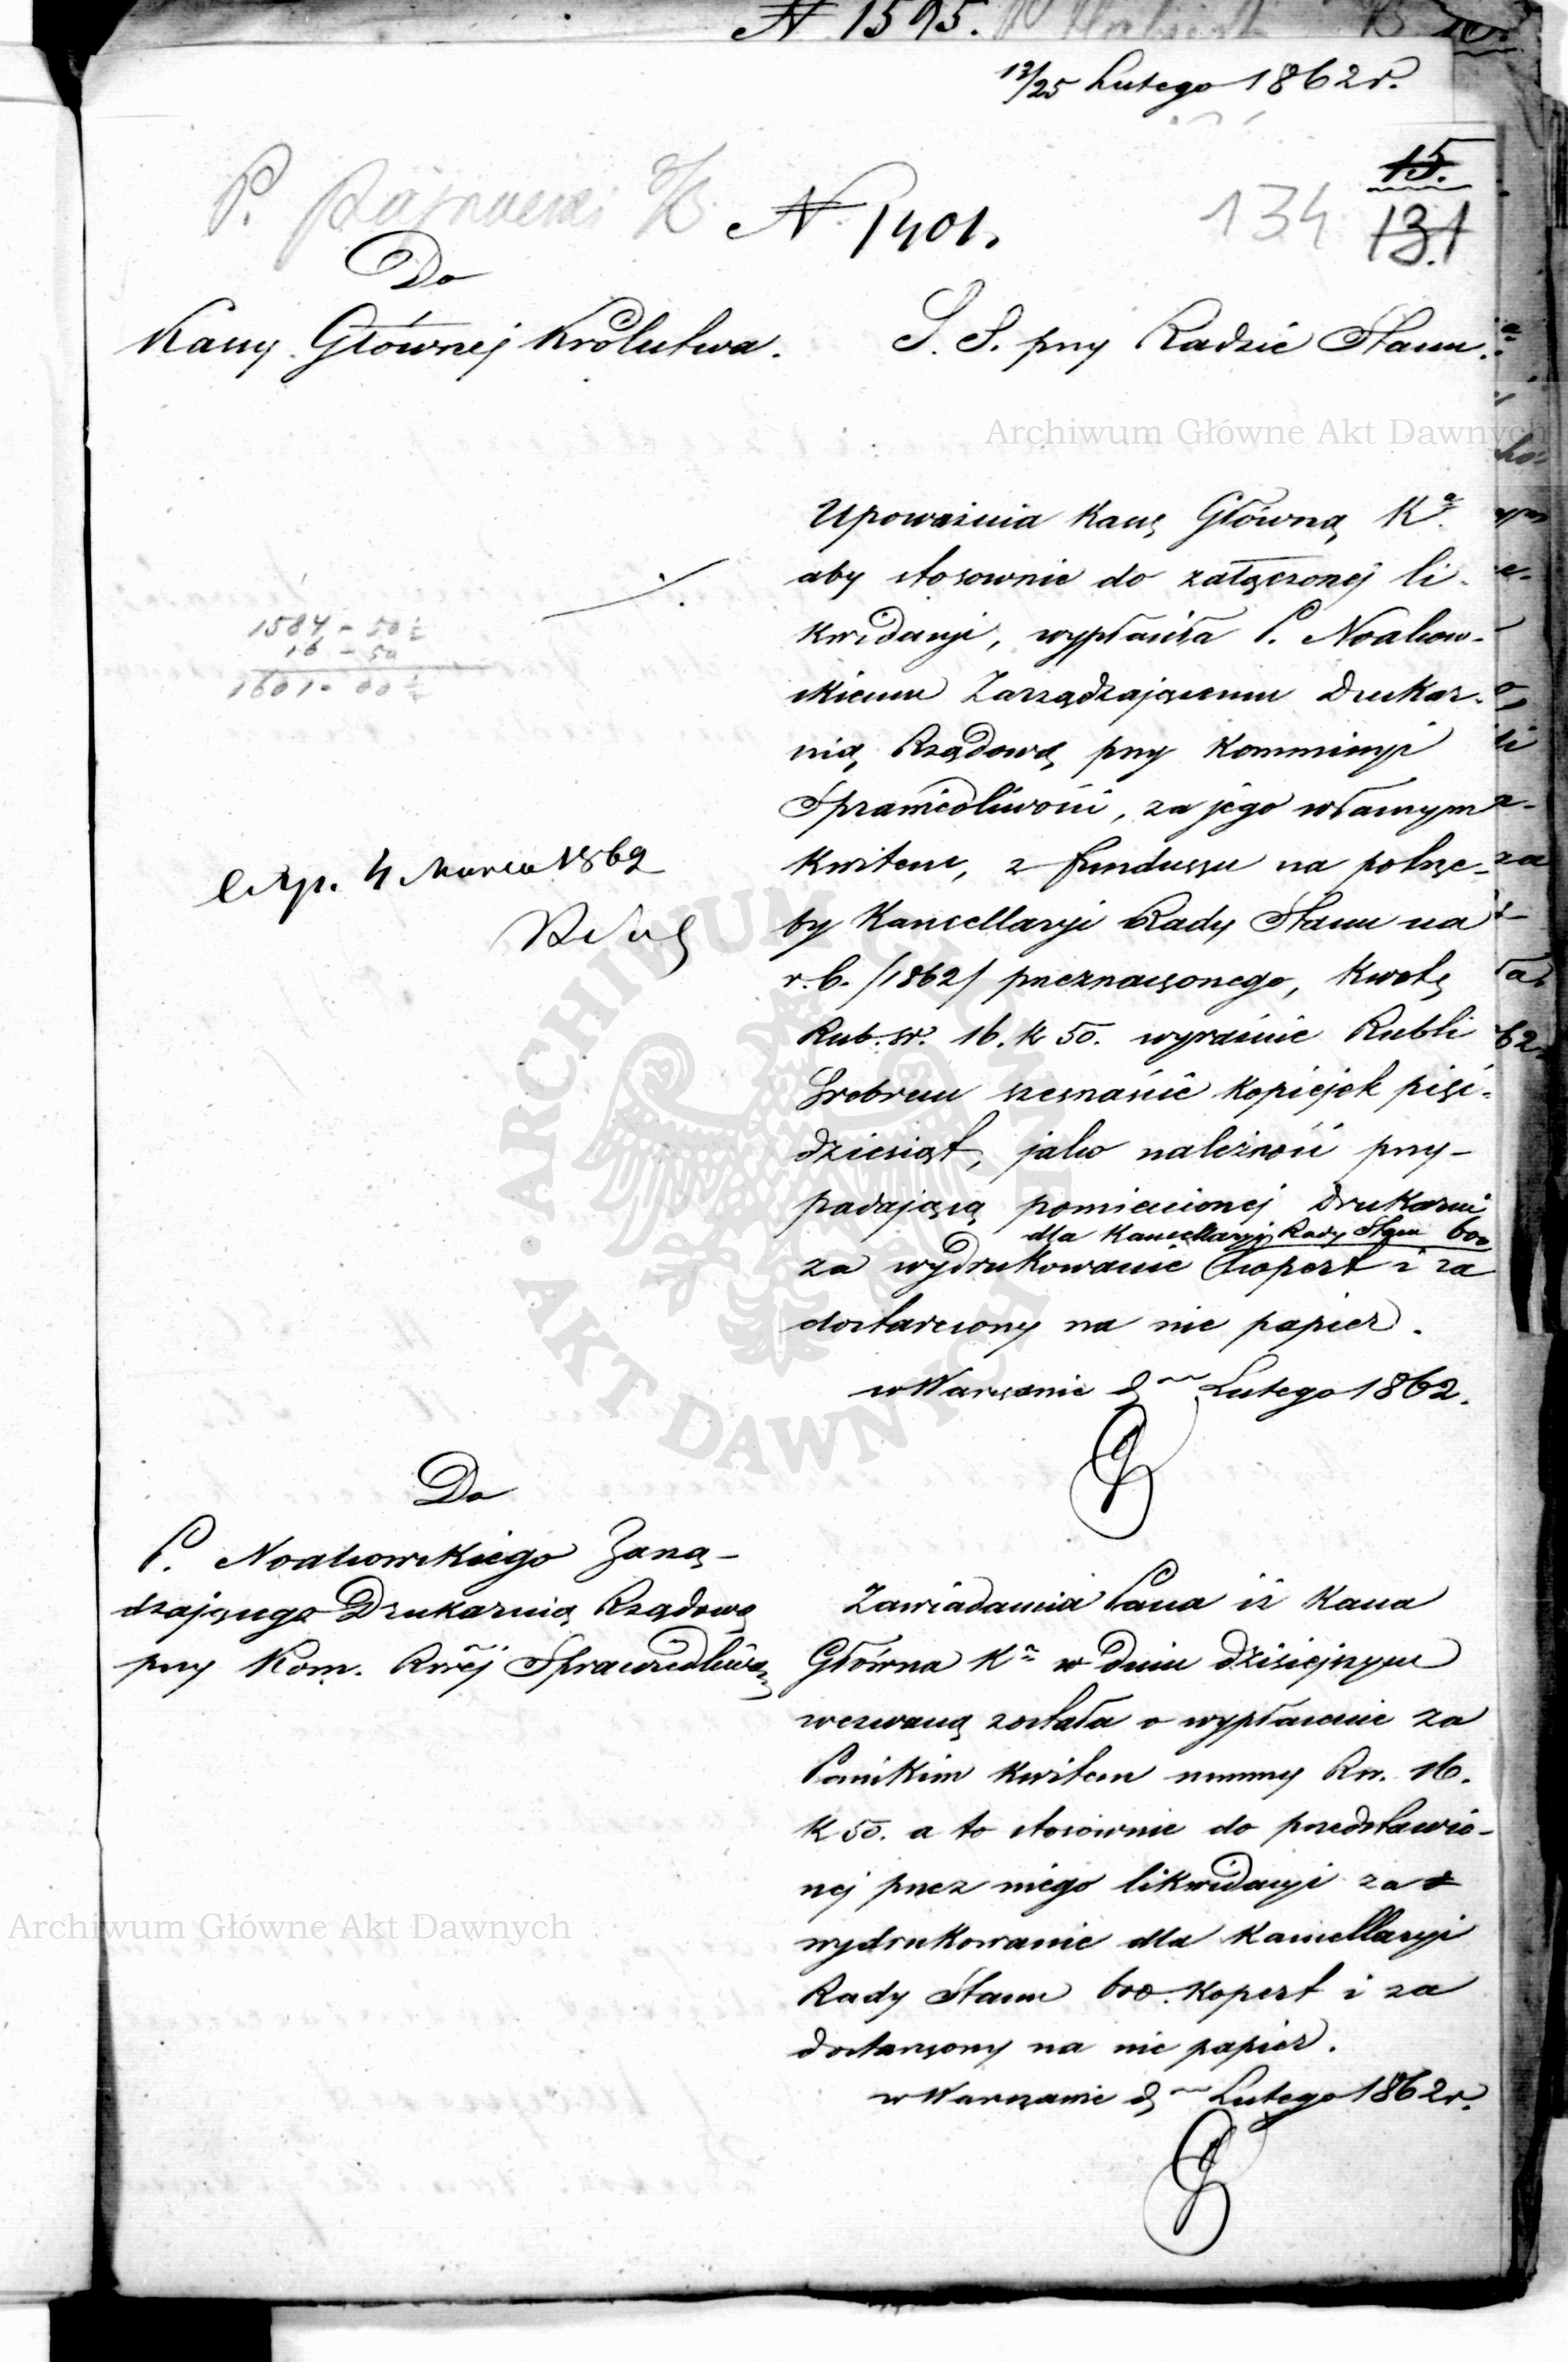 N 1595.
13/25 Lutego 1862 r.
15.
N. 1401.
134
131
Do
Kassy Głównej Królestwa.
S. S. przy Radzie Stanu.
Archiwum Główne Akt Dawnych
Upoważnia Kassę Główną Kᵃ
aby stosownie do załączonej li-
kwidacyi, wypłaciła P. Noakow-
skiemu Zarządzającemu Drukar-
nią Rządową przy Kommissyi
Sprawiedliwości, za jego własnym
kwitem, z funduszu na potrze-
by Kancellaryi Rady Stanu na
r. b. /1862/ przeznaczonego, kwotę
Rub. sr. 16. k 50. wyraźnie Rubli
Srebrem szesnaście kopiejek pięć-
dziesiąt, jako należność przy-
padającą pomienionej Drukarni
dla Kancellaryi Rady Stanu 600
za wydrukowanie kopert i za
dostarczony na nie papier.
w Warszawie d. Lutego 1862.
1584 - 50 ½
16 - 50
1601 - 00 ½
Exp. 4 Marca 1862
Do
P. Noakowskiego Zarzą-
dzającego Drukarnią Rządową
przy Kom. Rwéj Sprawiedliwo
Zawiadamia Pana iż Kassa
Główna Kᵃ w dniu dzisiejszym
wezwaną została o wypłacenie za
Pańskim kwitem summy Rsr. 16.
k 50. a to stosownie do przedstawio-
nej przez niego likwidacyi za
wydrukowanie dla Kancellaryi
Rady Stanu 600. kopert i za
dostarczony na nie papier.
w Warszawie d. Lutego 1862 r.
Archiwum Główne Akt Dawnych
ARCHIWUM GŁÓWNE • AKT DAWNYCH •